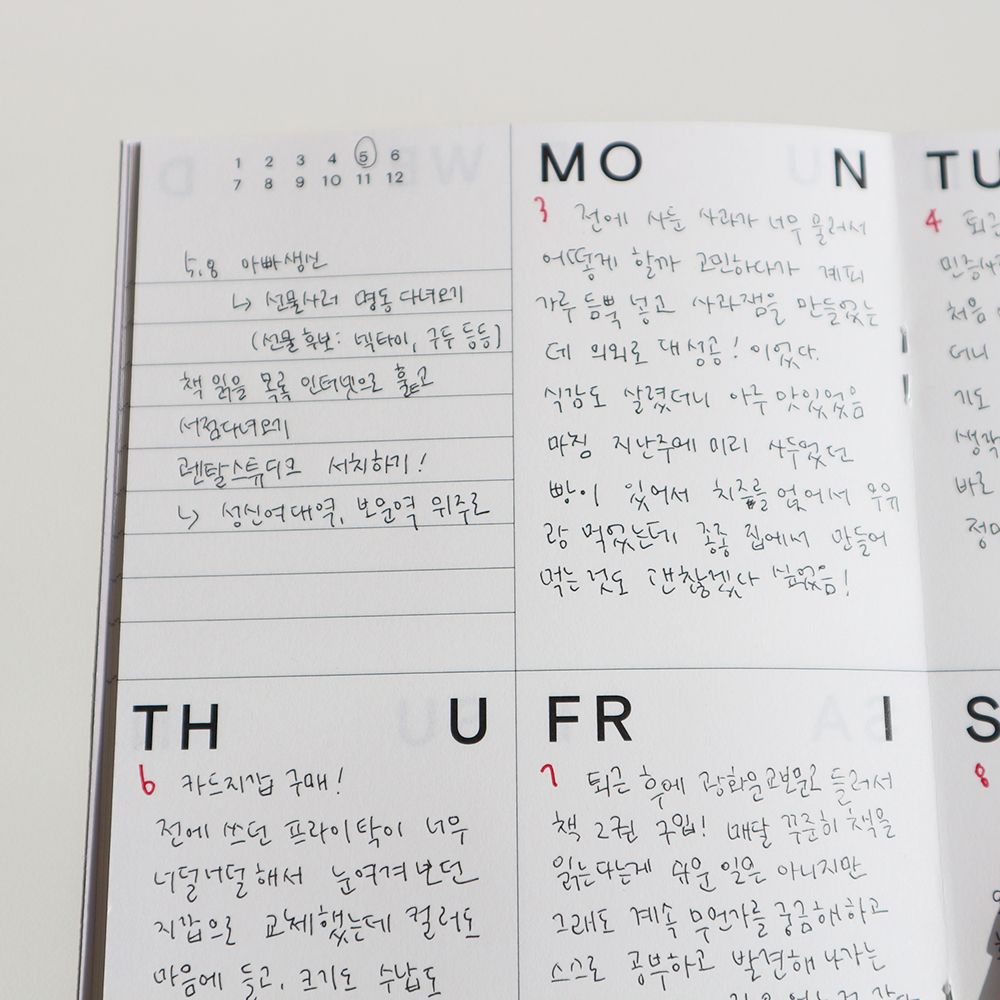 1 2 3 4 5 6
7 8 9 10 11 12
5.8 아빠생신
↳ 선물사러 명동 다녀오기
(선물후보: 넥타이, 구두 등등)
책 읽을 목록 인터넷으로 훑고
서점다녀오기
렌탈스튜디오 서치하기!
↳ 성신여대역, 보문역 위주로
MON
3 전에 사둔 사과가 너무 물러서
어떻게 할까 고민하다가 계피
가루 듬뿍 넣고 사과잼을 만들었는
데 의외로 대성공! 이었다.
식감도 살렸더니 아주 맛있었음
마침 지난주에 미리 사두었던
빵이 있어서 치즈를 얹어서 우유
랑 먹었는데 종종 집에서 만들어
먹는 것도 괜찮겠다 싶었음!
TU
4 퇴근
처음
더니
기도
생각
바로
THU
6 카드지갑 구매!
전에 쓰던 프라이탁이 너무
너덜너덜해서 눈여겨보던
지갑으로 교체했는데 컬러도
마음에 들고, 크기도 수납도
FRI
7 퇴근 후에 광화문교보문고 들러서
책 2권 구입! 매달 꾸준히 책을
읽는다는게 쉬운 일은 아니지만
그래도 계속 무언가를 궁금해하고
스스로 공부하고 발견해 나가는
S
8